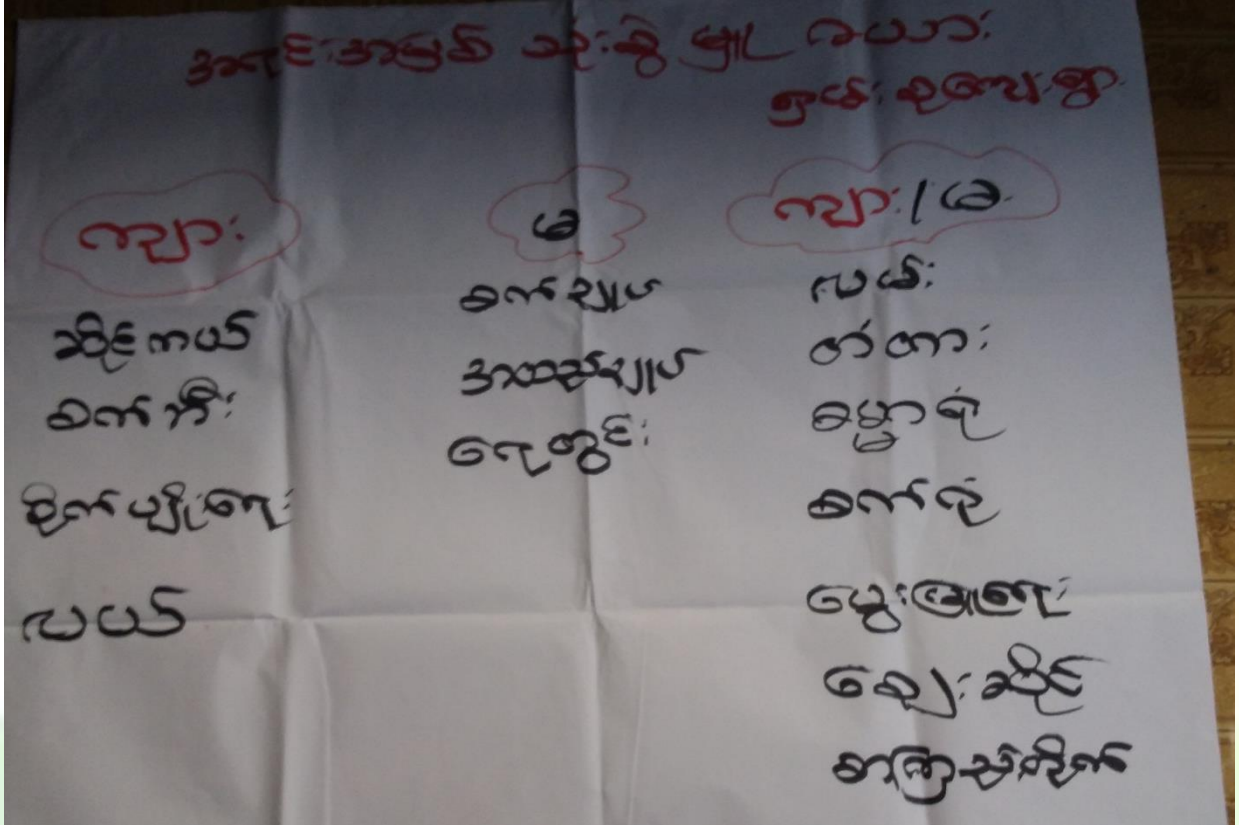 အရင်းအမြစ် သုံးစွဲ မှု ဇယား
ရှမ်းစုလေးရွာ
ကျား
မ
ကျား/မ
ဆိုင်ကယ်
စက်ဘီး
စိုက်ပျိုးရေး
လယ်
စက်ချုပ်
အထည်ချုပ်
ရေတွင်း
လမ်း
တံတား
ဓမ္မာရုံ
စက်ရုံ
မွေးမြူရေး
ဈေးဆိုင်
စာကြည့်တိုက်